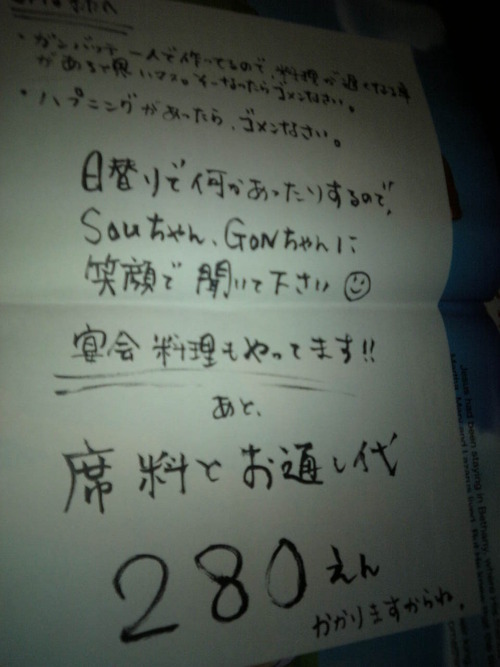 ・ガンバッテ一人で作ってるので、料理が遅くなる事
があると思いマス。そーなったらゴメンなさい。
・ハプニングがあったら、ゴメンなさい。
日替りで何かあったりするので、
Souちゃん、GONちゃんに
笑顔で聞いて下さい
宴会料理もやってます!!
あと、
席料とお通し代
280えん
かかりますからね。
Jesus had been staying in Bethany,